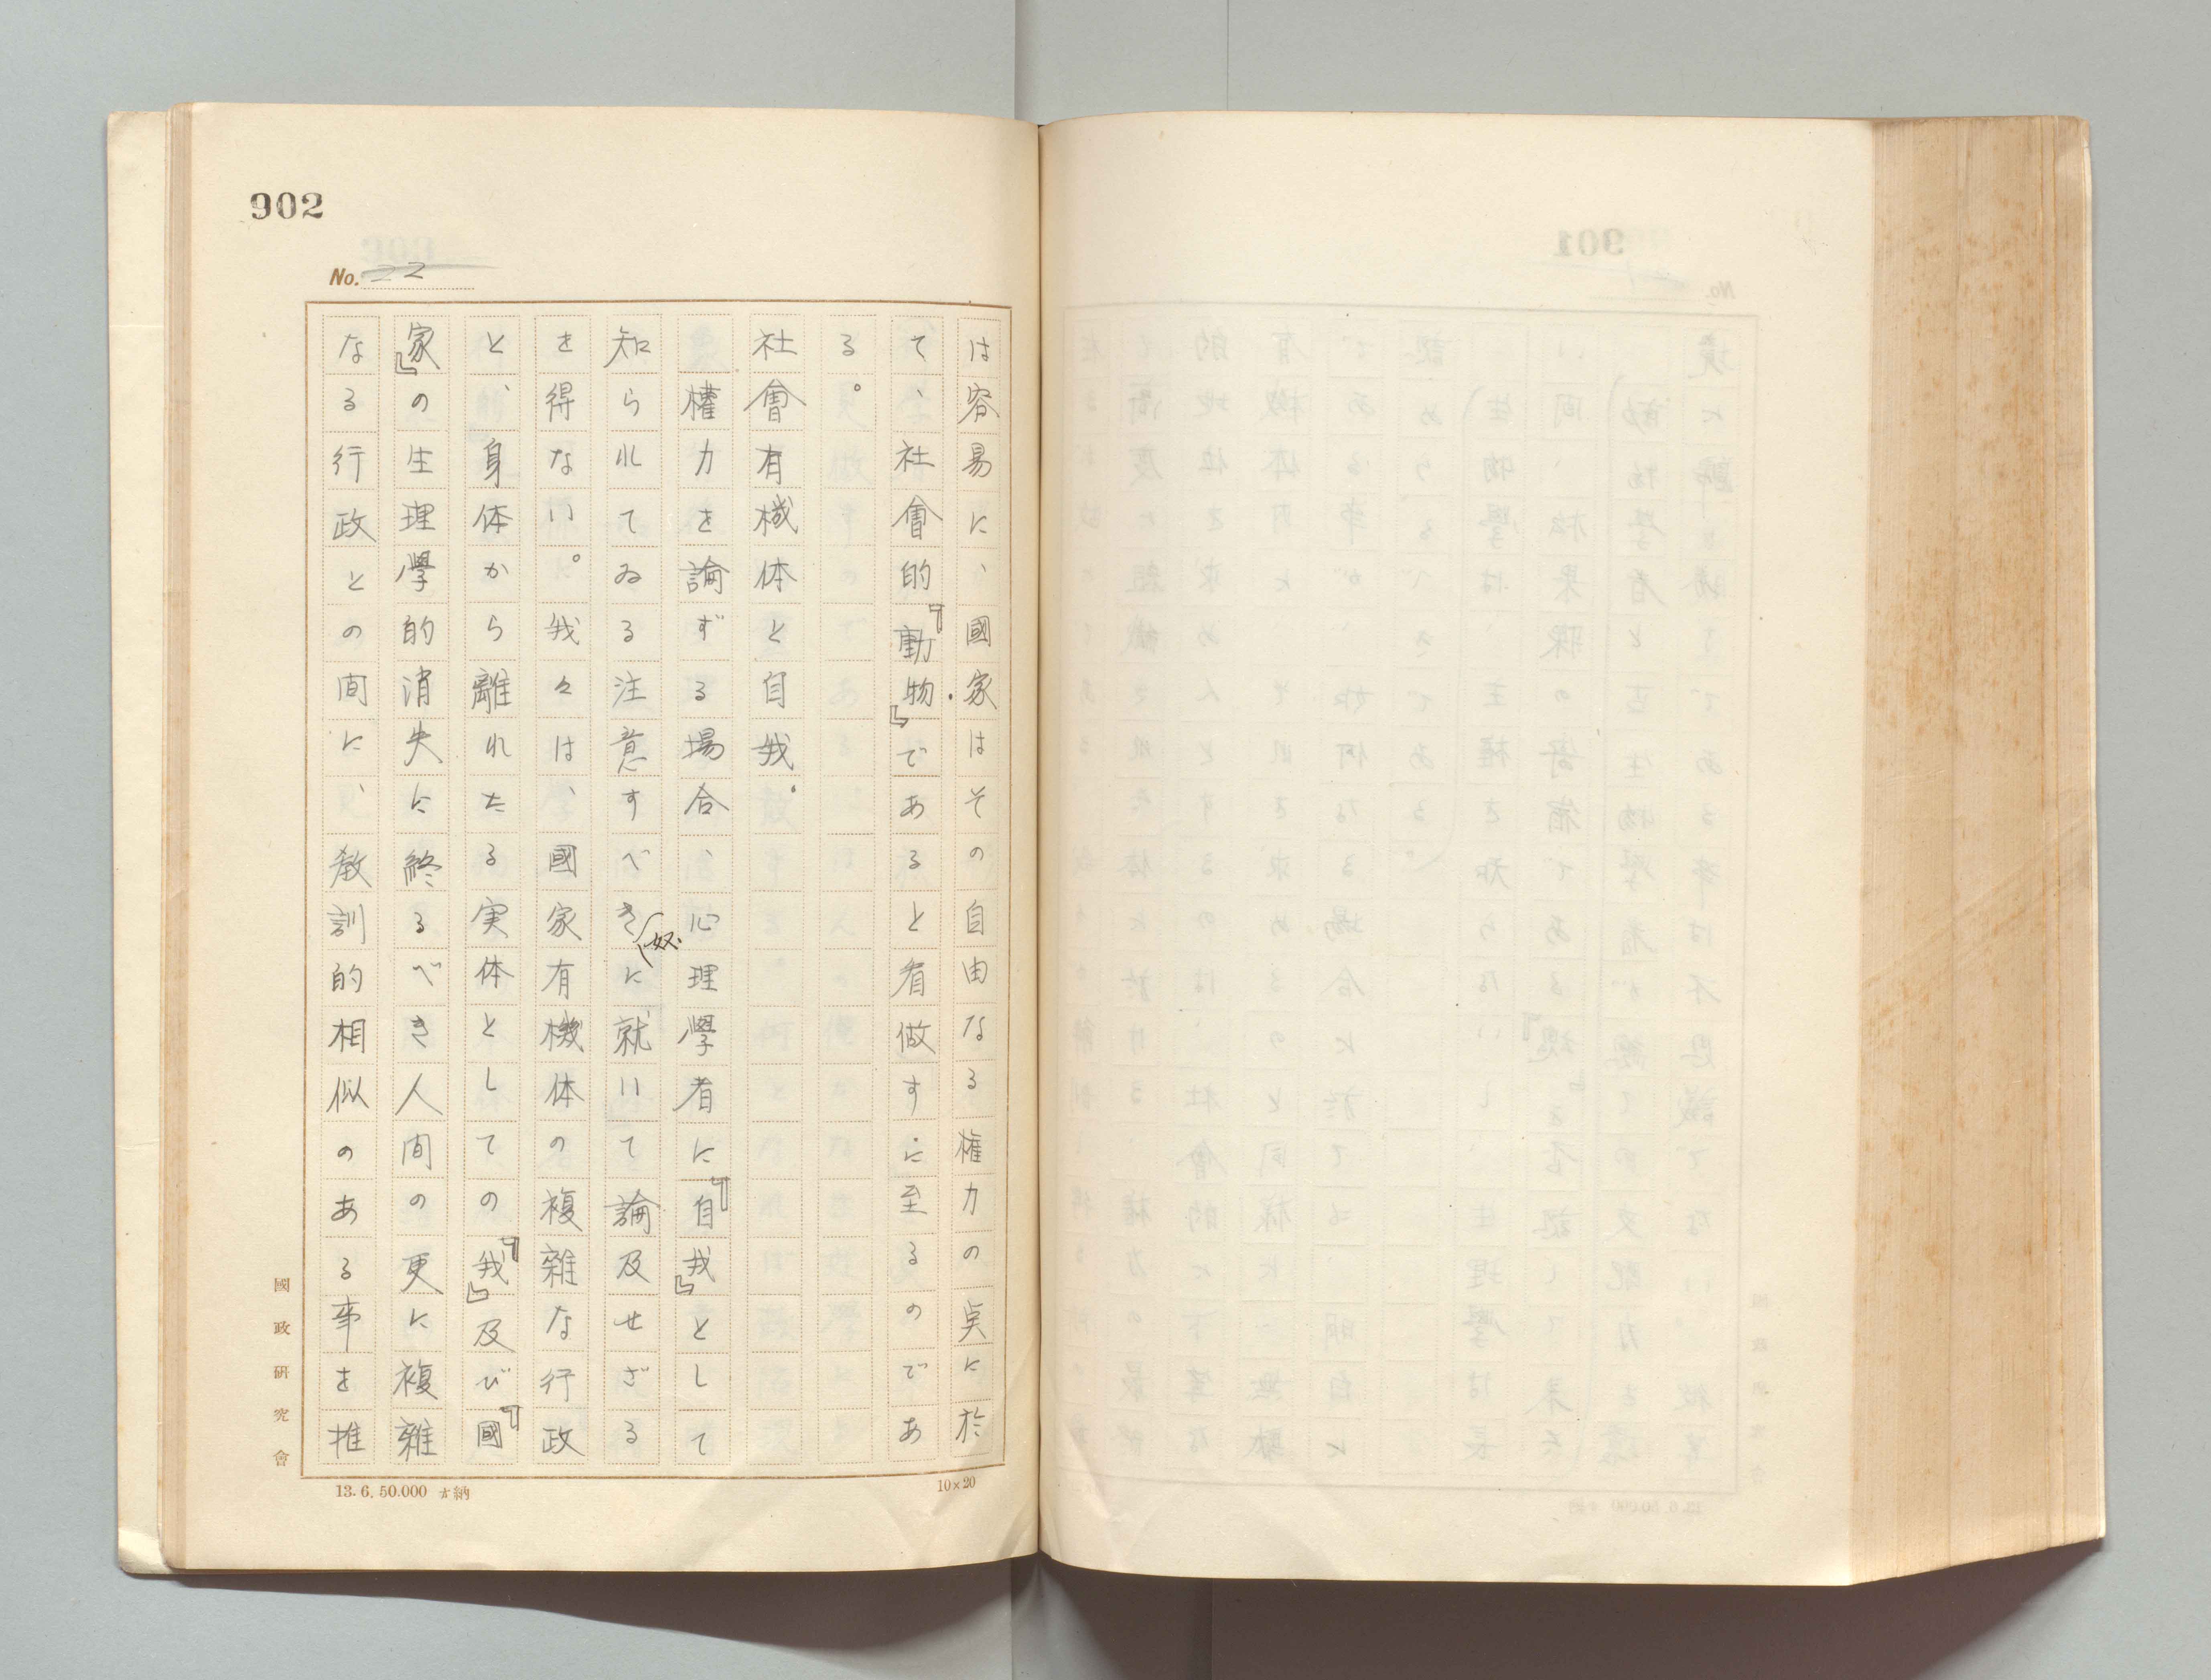 902
No. 22
は容易に、國家はその自由なる権力の奌に於
て、社會的『動物』であると看做すに至るのであ
る。
社會有機体と自我。
權力を論ずる場合、心理學者に『自我』として
知られてゐる注意すべき奴に就いて論及せざる
を得ない。我々は、國家有機体の複雑な行政
と、身体から離れたる実体としての『我』及び『國
家』の生理學的消失に終るべき人間の更に複雑
なる行政との間に、教訓的相似のある事を推
國政研究會
13. 6. 50.000 納
10×20